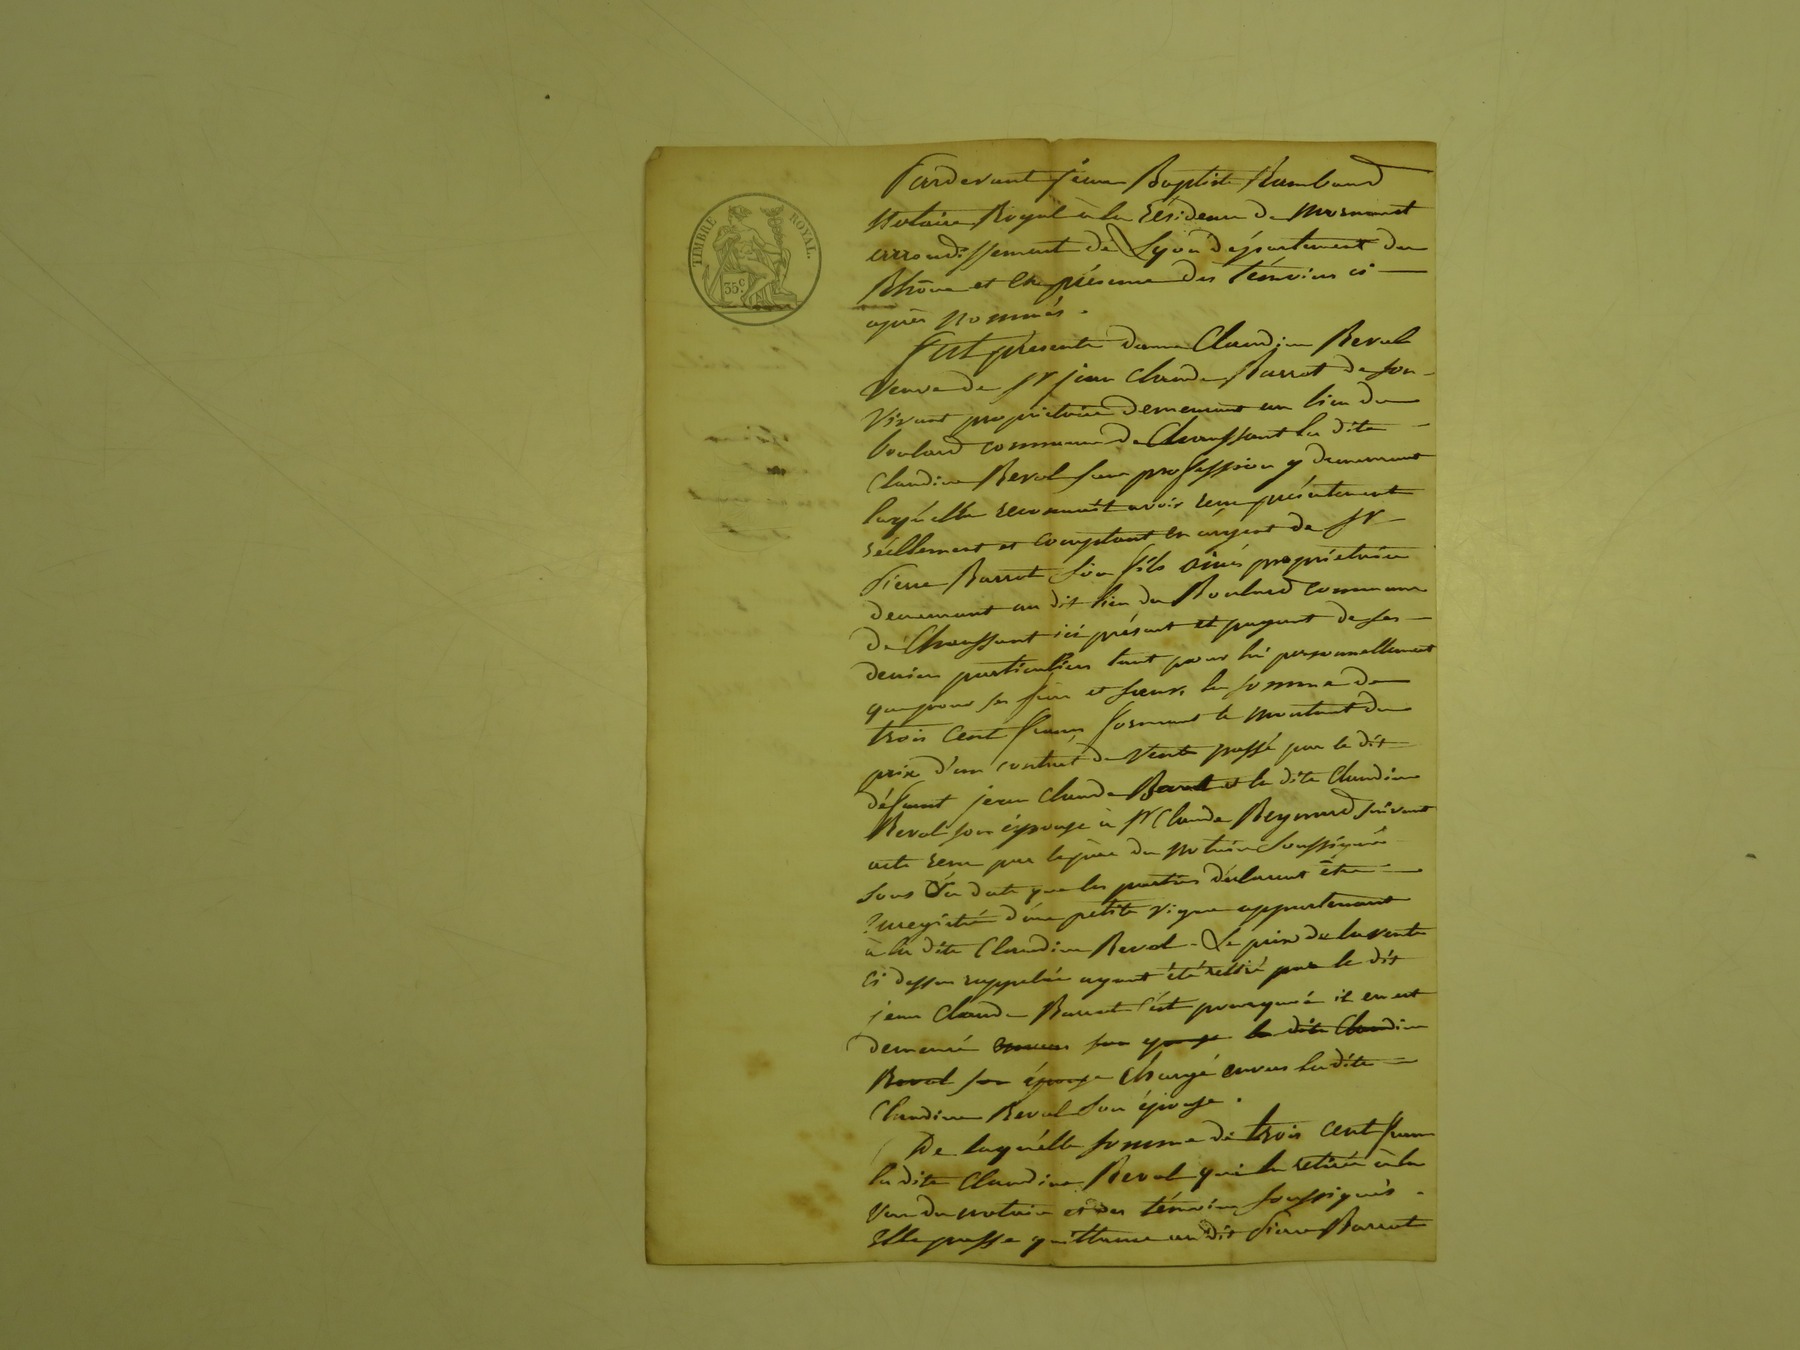 TIMBRE ROYAL.
35 c.
Pardevant jean Baptiste Rambaud
Notaire Royal à la résidence de Mornant
arrondissement de Lyon département du
Rhône et En présence des témoins ci
après nommés.
Fut présente dame Claudine Revol
Veuve de Sr jean Claude Barrot de son
Vivant propriétaire demeurant au lieu du
boulard commune de Chaussant la dite
Claudine Revol sans profession y demeurant
laquelle reconnait avoir reçu présentement
réellement et comptant en argent de Sr
Pierre Barrot son fils ainé propriétaire
demeurant au dit lieu du Boulard commune
de Chaussant ici présent et payant de ses
deniers particuliers tant pour lui personnellement
que pour ses frères et sœurs la somme de
trois cent francs formant le montant du
prix d'un contrat de vente passé par le dit
défunt jean Claude et la dite Claudine
Revol son épouse à Sr Claude Reynard suivant
acte reçu par le père du notaire soussigné
sous sa date que les parties déclarent être
Enregistré d'une petite vigne appartenant
à la dite Claudine Revol. Le prix de la vente
ci dessus rappelée ayant été retiré par le dit
jean Claude Barrot c'est pourquoi il en est
demeuré envers son épouse la dite Claudine
Revol son épouse chargé envers la dite
Claudine Revol son épouse.
De laquelle somme de trois cent francs
la dite Claudine Revol qui la retirée à la
Vue du notaire et des témoins soussignés
Elle passe quittance au dit Pierre Barrot